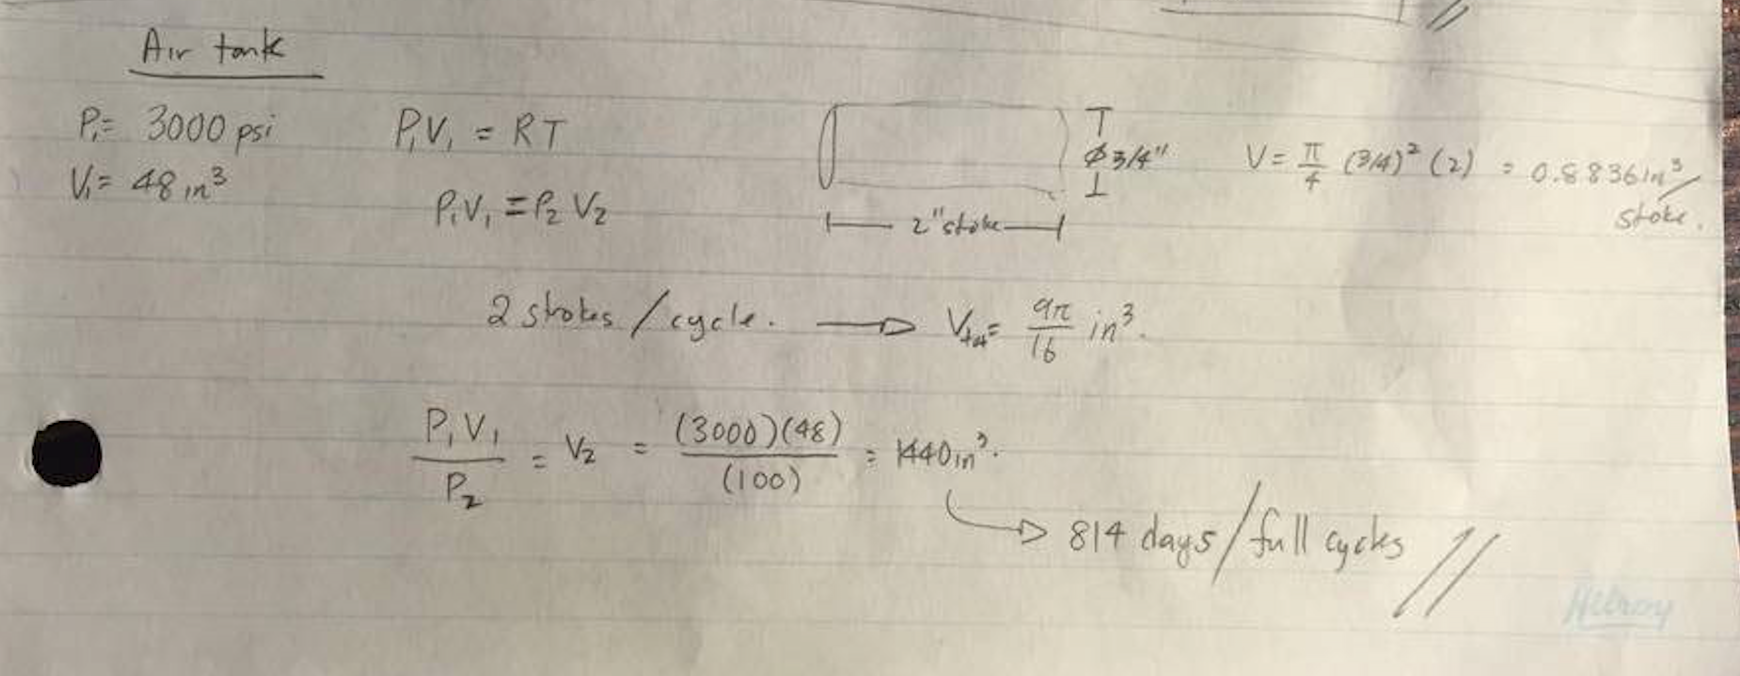 Air tank
P₁= 3000 psi
V₁= 48 in³
P₁V₁ = RT
P₁V₁ = P₂ V₂
⌀3/4"
2"stoke
V = π/4 (3/4)² (2) = 0.8836in³/stoke.
2 strokes / cycle. → V_tot= 9π/16 in³.
P₁V₁/P₂ = V₂ = (3000)(48)/(100) = 1440in³.
→ 814 days/full cycles //
Hilroy